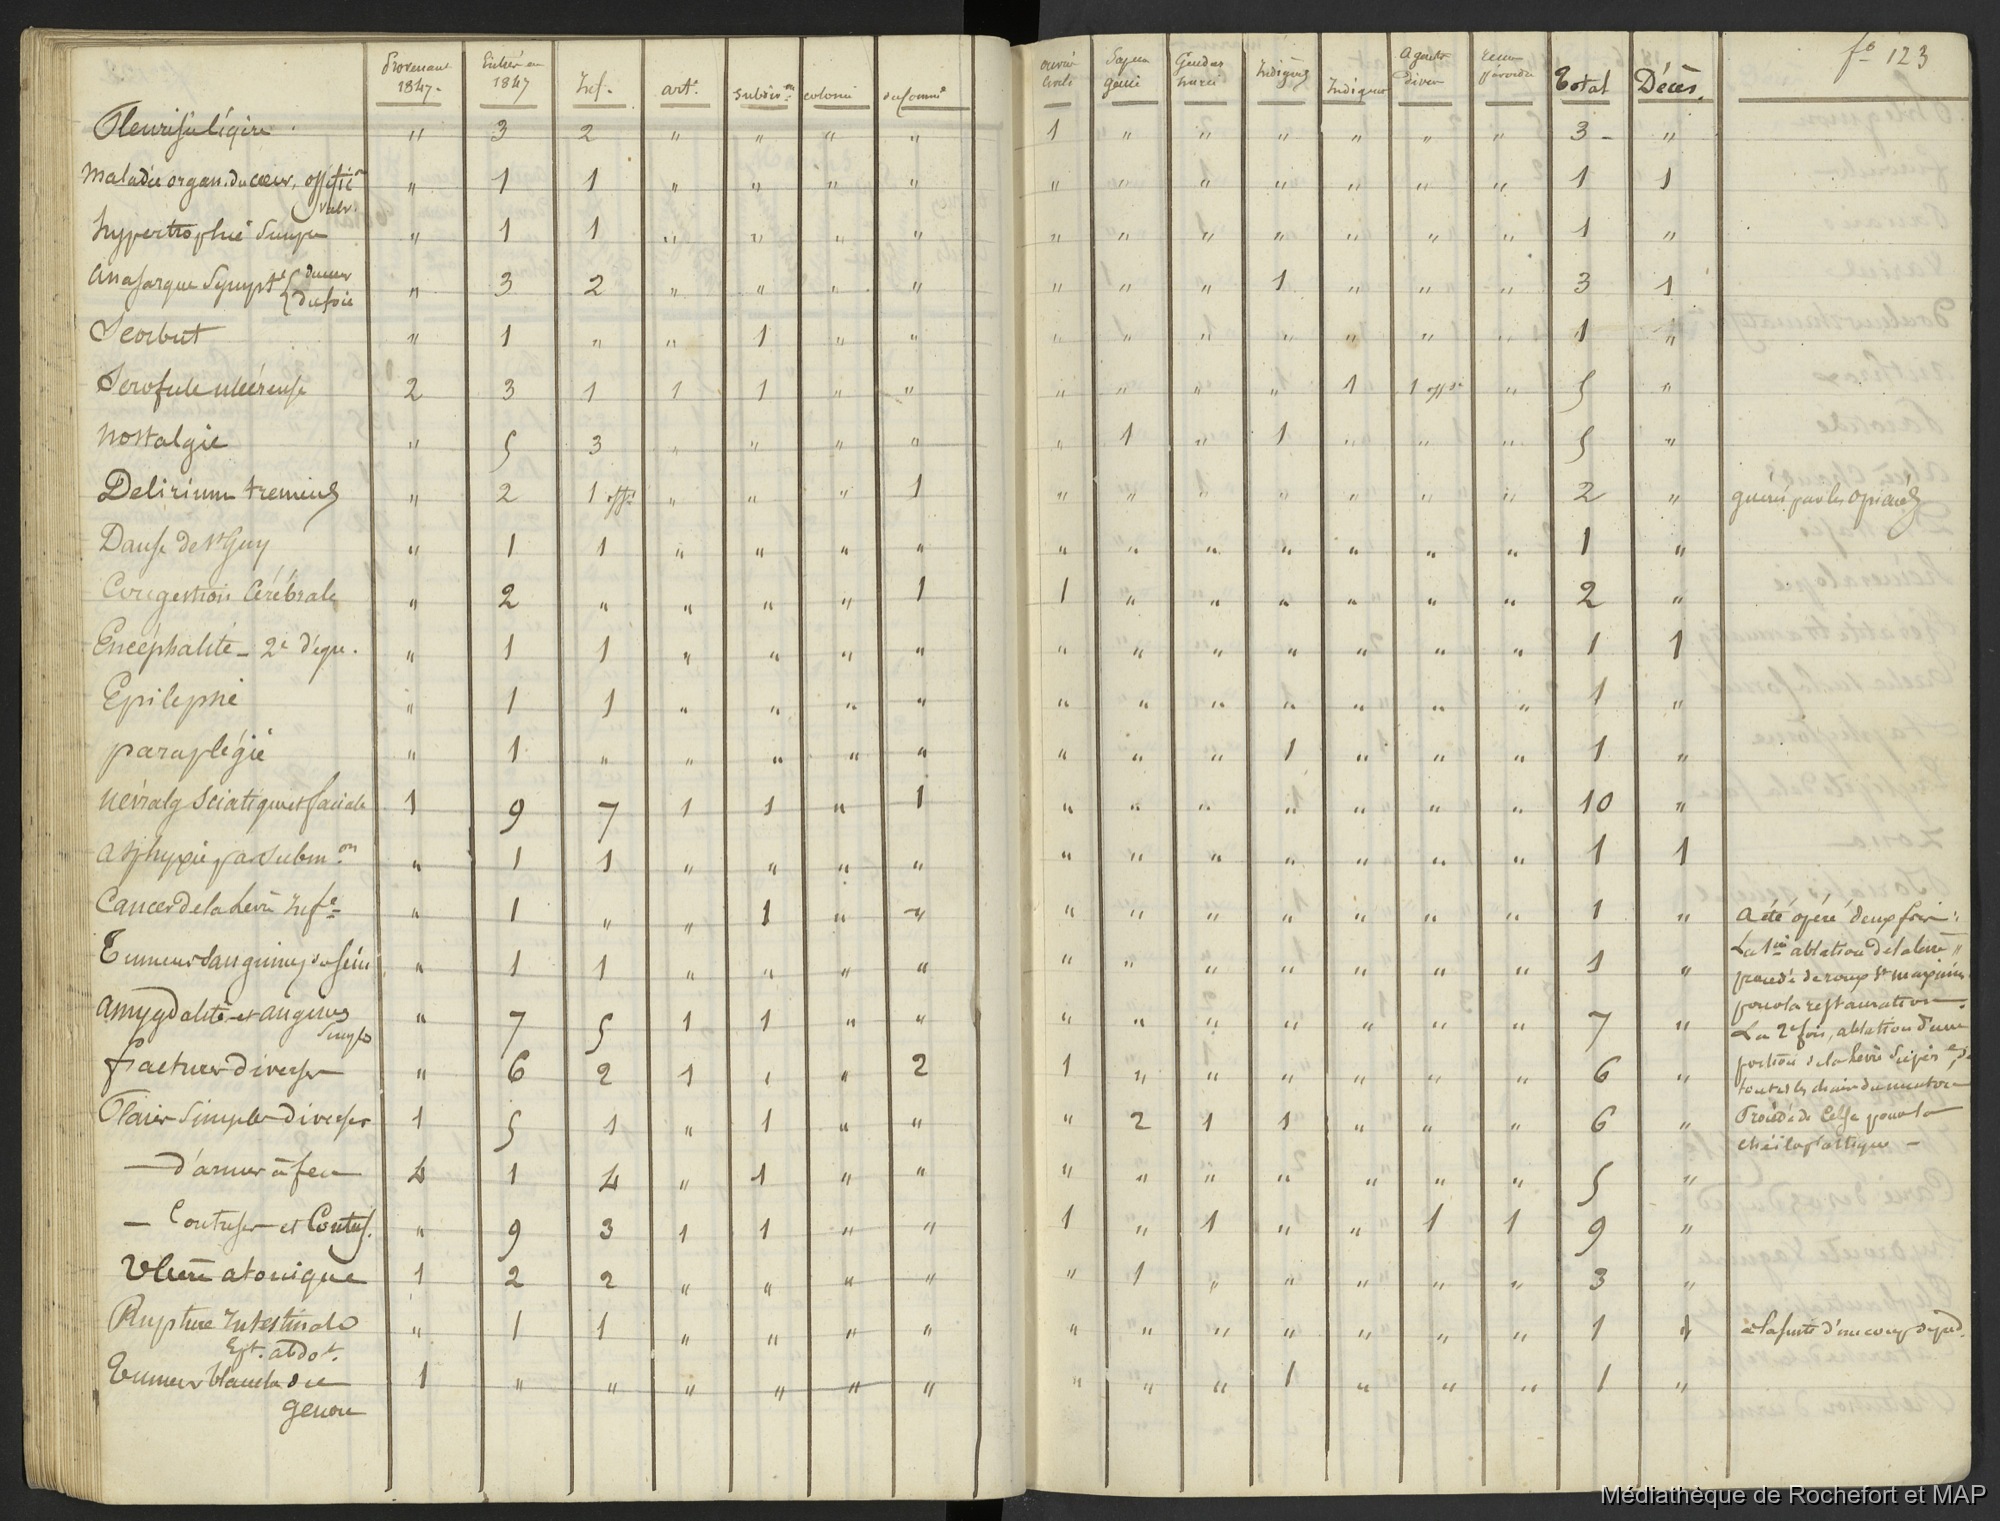 fo 123
Provenant 1847. Entrés en 1847 Inf. art. subdiv.on colonie du commce ouvriers civils Sapeur génie Gendarmerie Indigènes Indigens Agents divers Total Décès.
Pleurésie légère " 3 2 " " " " 1 " " " " " " 3 "
Maladie organ. du cœur, affection " 1 1 " " " " " " " " " " " 1 1
valv.
hypertrophie simple " 1 1 " " " " " " " " " " " 1 "
Anasarque Sympt. du cœur " 3 2 " " " " " " " 1 " " " 3 1
du foie
Scorbut " 1 " " 1 " " " " " " " " " 1 "
Scrofule ulcéreuse 2 3 1 1 1 " " " " " " 1 1 offr " 5 "
Nostalgie " 5 3 " " " " " 1 " 1 " " " 5 "
Delirium tremens " 2 1 offr " " " 1 " " " " " " " 2 " guéris par les opiacés
Danse de St Guy " 1 1 " " " " " " " " " " " 1 "
Congestion Cérébrale " 2 " " " " 1 1 " " " " " " 2 "
Encéphalite - 2e dégré. " 1 1 " " " " " " " " " " " 1 1
Epilepsie " 1 1 " " " " " " " " " " " 1 "
paraplégie " 1 " " " " " " " " 1 " " " 1 "
Névralg sciatique et faciale 1 9 7 1 1 " 1 " " " " " " " 10 "
Asphyxie par subm.on " 1 1 " " " " " " " " " " " 1 1
Cancer de la Lèvre Infre " 1 " " 1 " " " " " " " " " 1 " A été opéré deux fois :
La 1ère ablation de la lèvre
Tumeur sanguine du sein " 1 1 " " " " " " " " " " " 1 " procédé de roux St maximin
pour la restauration.
Amygdalite et angines " 7 5 1 1 " " " " " " " " " 7 "
simples
La 2e fois, ablation d'une
fractures diverses " 6 2 1 " " 2 1 " " " " " " 6 " portion de la lèvre Supére
toutes les chairs du menton
Plaies simples diverses 1 5 1 " 1 " " " 2 1 1 " " " 6 " Procédé de Celse pour la
chéiloplastique -
— d'armes à feu 4 1 4 " 1 " " " " " " " " " 5 "
— Contuses et Contus. " 9 3 1 1 " " 1 " 1 " " 1 1 9 "
Ulcère atonique 1 2 2 " " " " " 1 " " " " " 3 "
Rupture Intestinale " 1 1 " " " " " " " " " " " 1 1 à la suite d'un coup de pied.
Tumeur blanche du 1 " " " " " " " " " 1 " " " 1 "
genou
Médiathèque de Rochefort et MAP